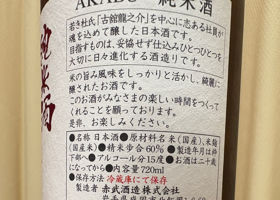 AKABU 純米酒
若き杜氏「古舘龍之介」を中心に志ある社員が
魂を込めて醸した日本酒です。
目指すものは、妥協せず仕込みひとつひとつを
大切に日々進化する酒造りです。
米の旨み風味をしっかりと活かし、綺麗に
醸されたお酒です。
このお酒がみなさまの楽しい時間をつくって
くれることを願っております。
是非、お楽しみください。
●名称 日本酒●原材料名 米(国産)、米麹
(国産米)●精米歩合60%●製造年月は枠
下部へ●アルコール分15度●お酒は二十歳
になってから●内容量720ml
●保存方法 冷蔵庫にて保存
製造者 赤武酒造株式会社
岩手県盛岡市北飯岡1-8-60
純米酒